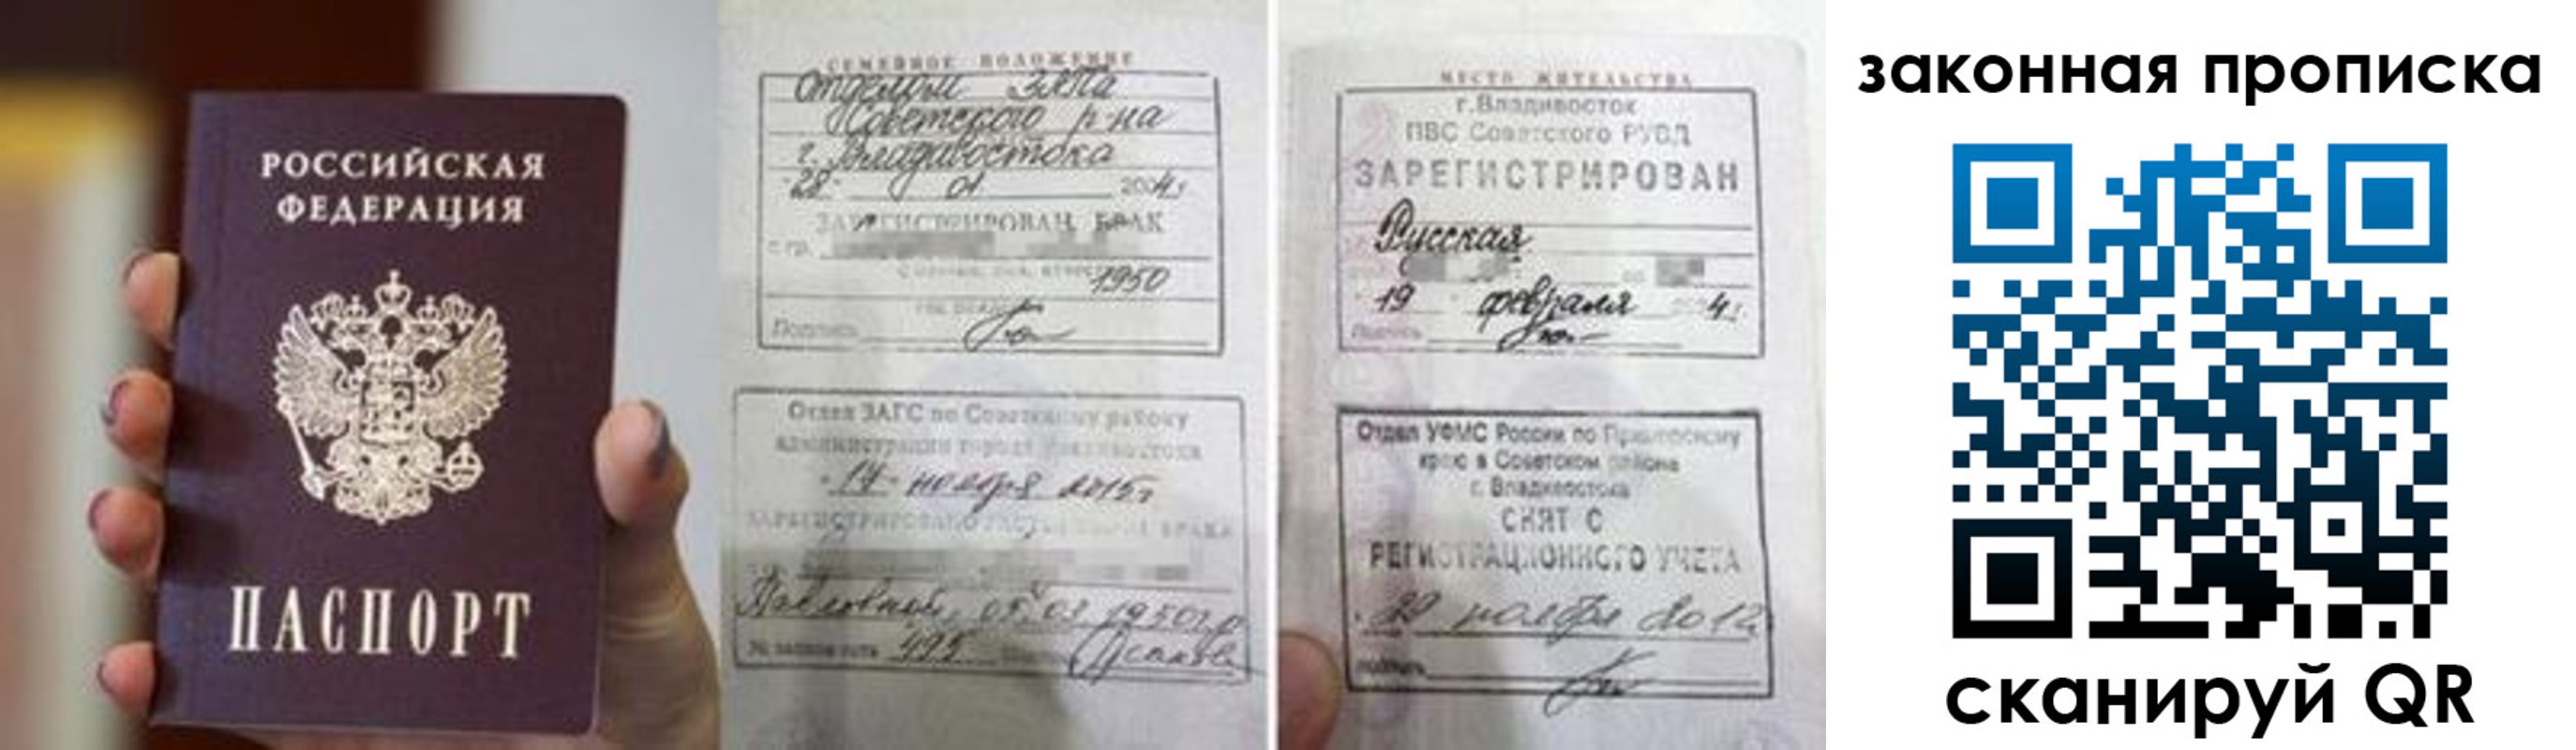 РОССИЙСКАЯ
ФЕДЕРАЦИЯ
ПАСПОРТ
СЕМЕЙНОЕ ПОЛОЖЕНИЕ
Отделом ЗАГСа
Советского р-на
г. Владивостока
"28" 01 2004 г.
ЗАРЕГИСТРИРОВАН БРАК
с гр.
1950
Подпись
Отдел ЗАГС по Советскому району
администрации города Владивостока
"17" ноября 2015 г
Павловной, 05.03.1950 г.р
№ 495
МЕСТО ЖИТЕЛЬСТВА
г.Владивосток
ПВС Советского РУВД
ЗАРЕГИСТРИРОВАН
Русская
19 февраля 4 г.
Подпись
Отдел УФМС России по Приморскому
краю в Советском районе
г. Владивостока
СНЯТ С
РЕГИСТРАЦИОННОГО УЧЕТА
ноября 2012
подпись
законная прописка
сканируй QR